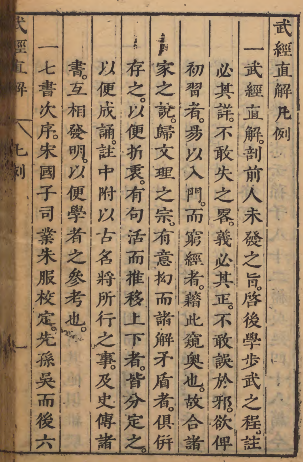 武經直解凡例
一武經直解剖前人未發之旨啓後學步武之程註
必其詳不敢失之畧義必其正不敢誤於邪欲俾
初習者易以入門而窮經者藉此窺奧也故合諸
家之說歸文理之宗有意拘而諸解矛盾者俱併
存之以便折衷有句活而推移上下者皆分定之
以便成誦註中附以古名將所行之事及史傳諸
書互相發明以便學者之參考也
一七書次序宋國子司業朱服校定先孫吳而後六
武經直解
凡例